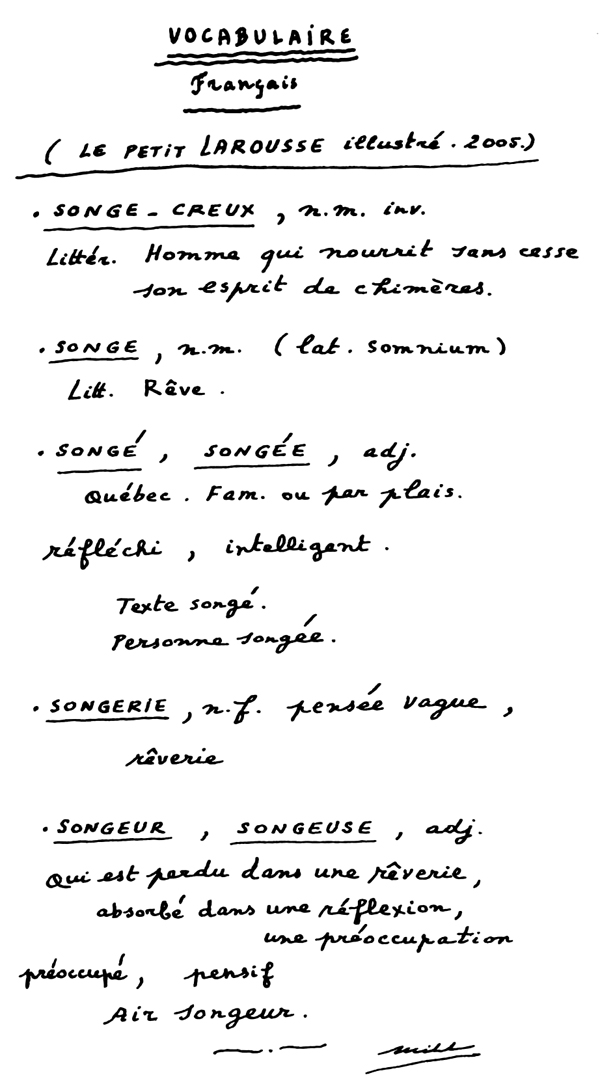 VOCABULAIRE
Français
( LE PETIT LAROUSSE illustré . 2005.)
. SONGE - CREUX , n.m. inv.
Littér. Homme qui nourrit sans cesse
son esprit de chimères.
. SONGE , n.m. ( lat. somnium )
Litt. Rêve .
. SONGÉ , SONGÉE , adj.
Québec . Fam. ou par plais.
réfléchi , intelligent .
Texte songé.
Personne songée.
. SONGERIE , n.f. pensée vague ,
rêverie
. SONGEUR , SONGEUSE , adj.
Qui est perdu dans une rêverie,
absorbé dans une réflexion,
une préoccupation
préoccupé, pensif
Air songeur.